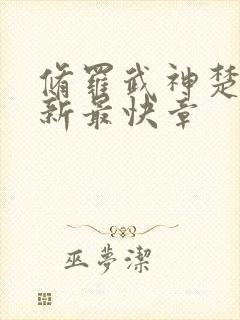 脩羅武神楚
新最快章
巫夢潔